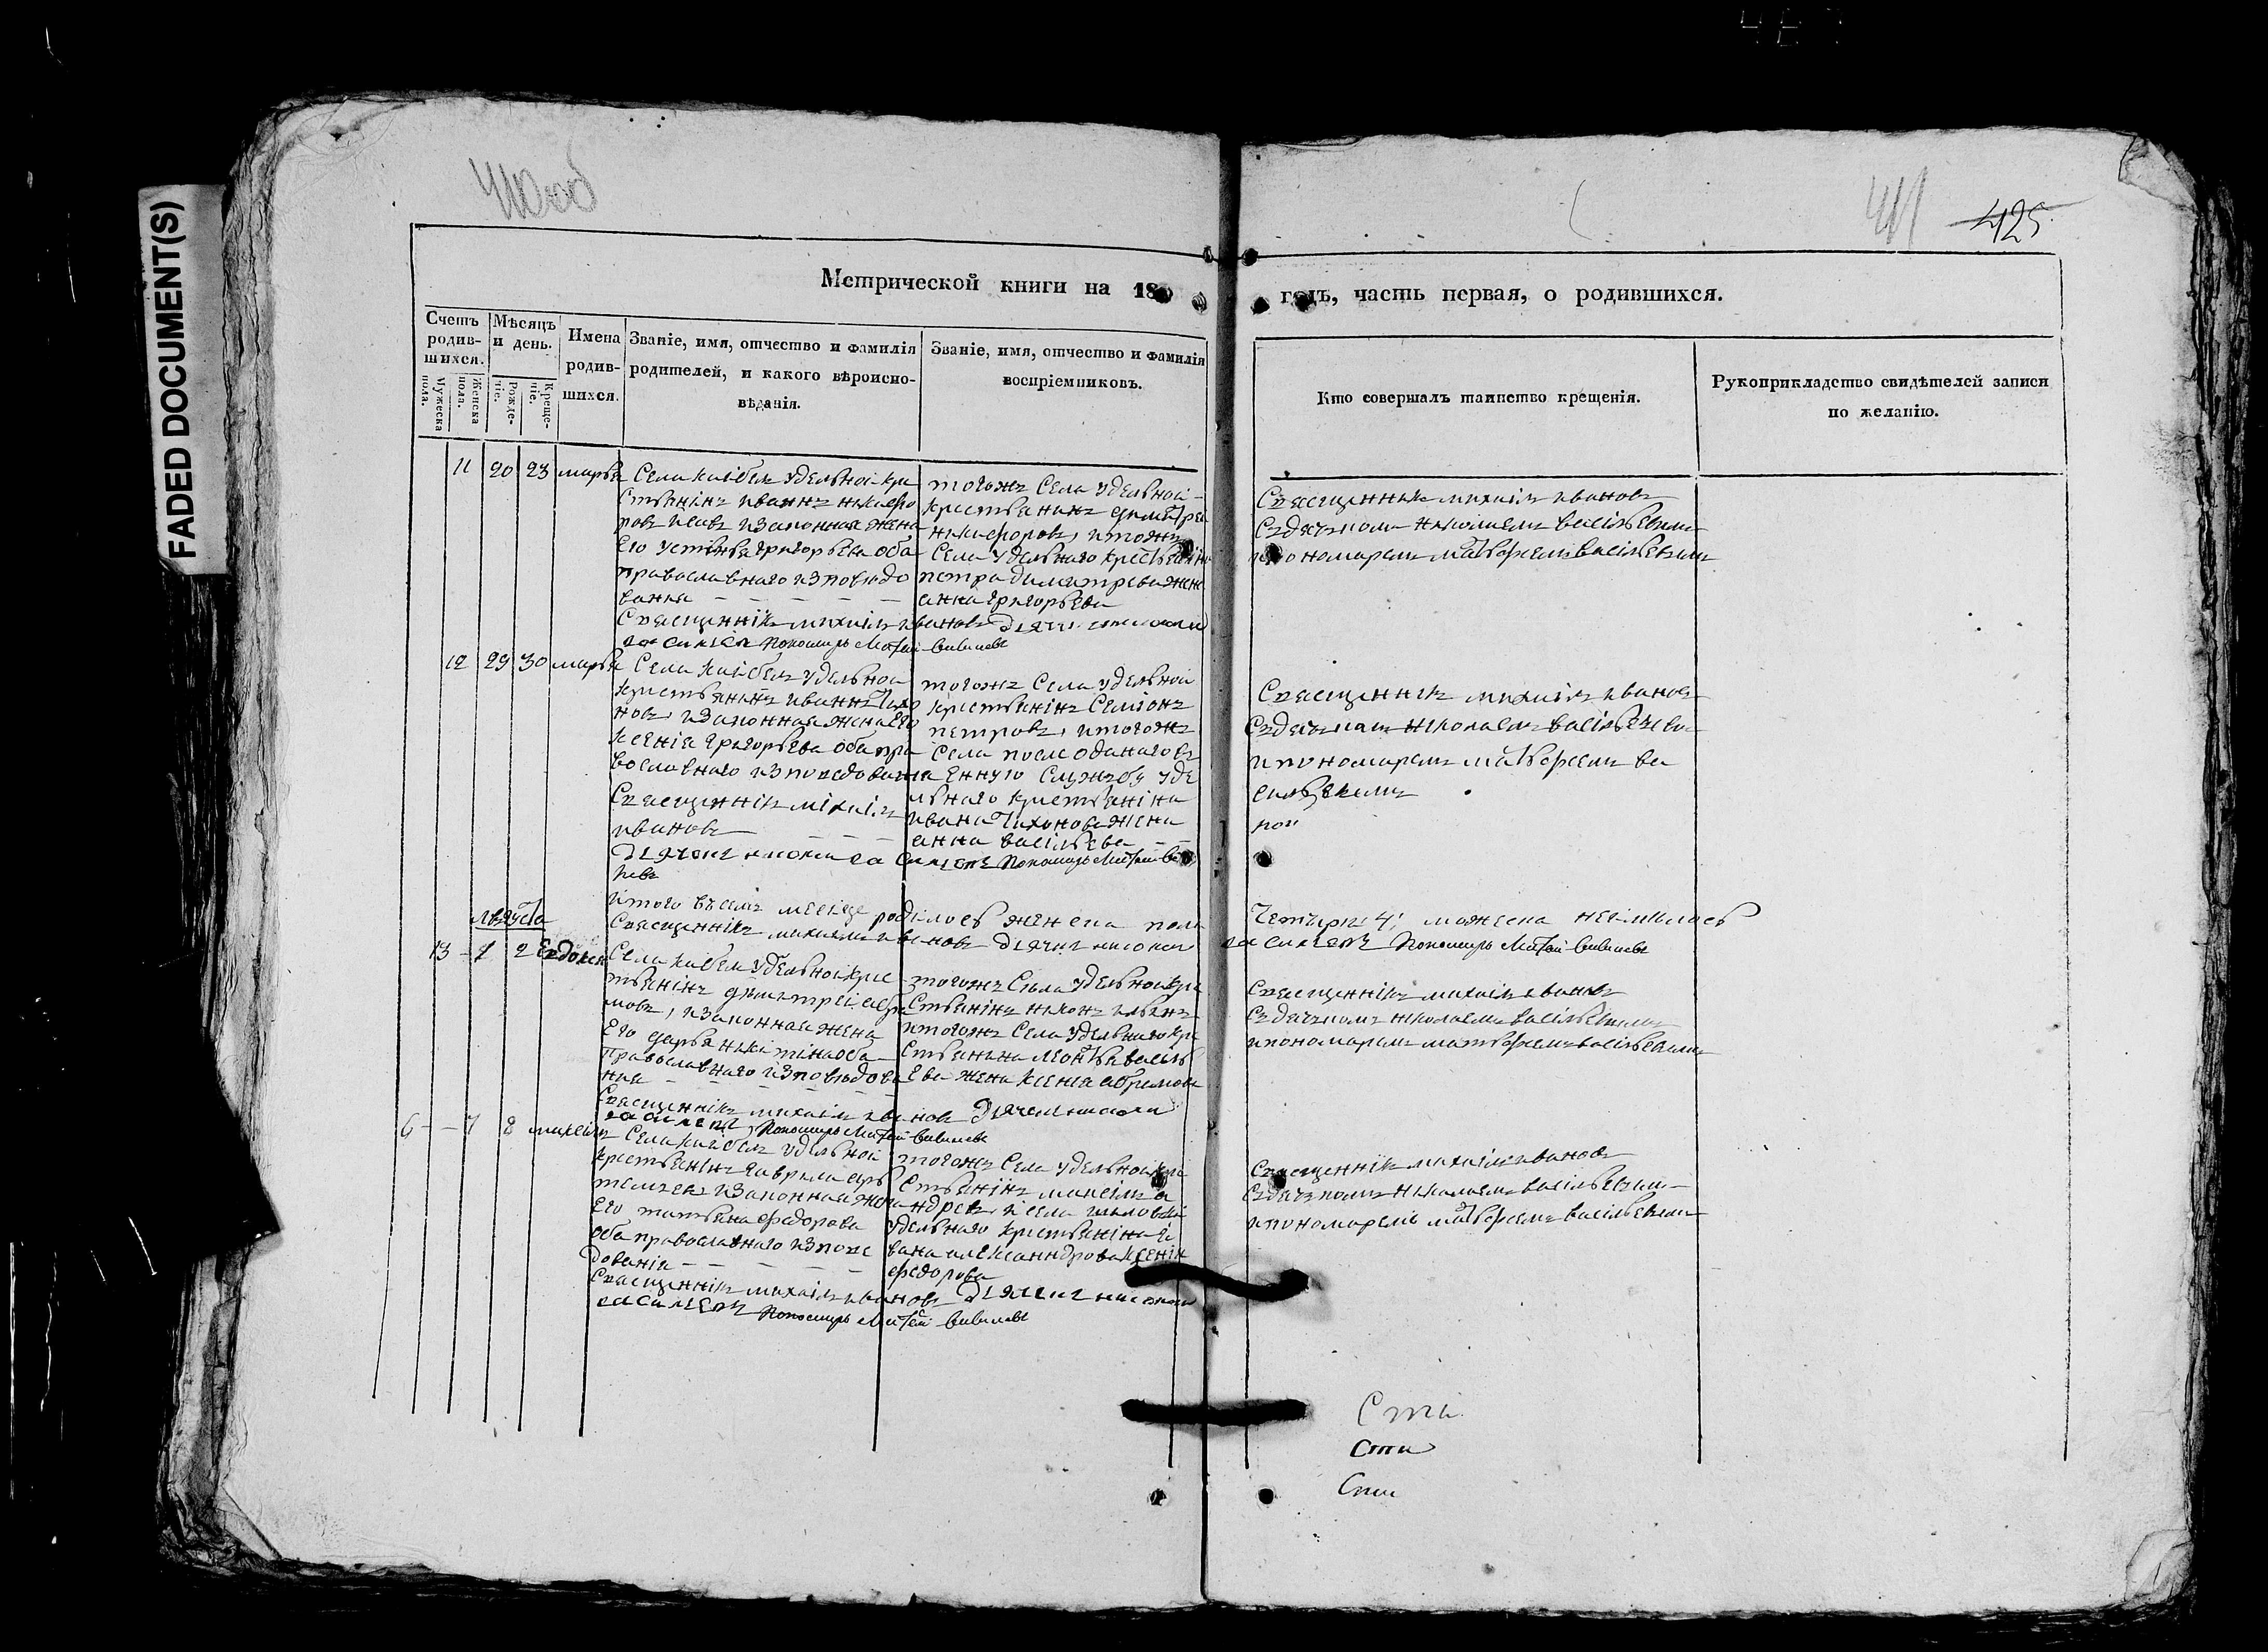 FADED DOCUMENT(S)
410об
411 425
Метрической книги на 18
годъ, часть первая, о родившихся.
Счетъ родив-шихся.
Мужеска пола.
Женска пола.
Мѣсяцъ и день.
Рожде-ніе.
Креще-ніе.
Имена родив-шихся.
Званіе, имя, отчество и фамилія
родителей, и какого вѣроиспо-
вѣданія.
Званіе, имя, отчество и фамилія
воспріемниковъ.
Кто совершалъ таинство крещенія.
Рукоприкладство свидѣтелей записи
по желанію.
11 20 23 марья
Села удельной кре
стьянинъ иваннъ никифо
ровъ изаконная жена
Его устинья григорьева оба
православнаго изповедо
вания
тогожъ Села удельной
крестьянинъ димитреи
никифоровъ, итогожъ
Села удельнаго крестьянина
петра димитрева жена
анна григорьева
Священникъ михаилъ ивановъ
Съдьячкомъ николаемъ васильевымъ
ипономаремъ матвеемъ васильевымъ
Священнikъ михаилъ ивановъ Дьячекъ николай
василевъ Пономарь Матвей Васильевъ
12 29 30 марья
Села удельной
крестьянинъ иваннъ тихо
новъ изаконная жена Его
ксения григорьева оба пра
вославнаго изповедования
тогожъ Села удельной
крестьянинъ Семионъ
петровъ, итогожъ
Села после оданаговъ
енную Службу уде
льнаго крестьянина
ивана тихонова жена
анна васильева
Священникъ михаилъ ивановъ
Съдьячкомъ николаемъ васильевымъ
ипономаремъ матвеемъ ва
сильевымъ
Священникъ михаилъ
ивановъ
Дьячекъ николай василевъ Пономарь Матвей Ва
левъ
итого всемъ месеце родилось женска пола
Четыри 4; мужеска неимилось
Священникъ михаилъ ивановъ Дьячекъ николай
василевъ Пономарь Матвей Васильевъ
Августа
13 1 2 Евдокея
Села удельной крес
тьянинъ димитреи абра
мовъ, изаконная жена
Его дарья никитина оба
православнаго изповедова
ния
тогожъ Села удельной кре
стьянинъ никонъ
итогожъ Села удельнаго кре
стьянина леонтья василь
Ева жена Ксения абрамова
Священникъ михаилъ ивановъ
Съдьячкомъ николаемъ васильевымъ
ипономаремъ матвеемъ васильевымъ
Священникъ михаилъ ивановъ Дьячекъ николай
василевъ Пономарь Матвей Васильевъ
6 7 8
Села удельной
крестьянинъ гаврила ар
темьевъ изаконная жена
Его татьяна федорова
оба православнаго изпове
дования
тогожъ Села удельной кре
стьянинъ максимъ а
ндреевъ, и села
удельнаго крестьянина и
вана александрова Ксения
федорова
Священникъ михаилъ ивановъ
Съдьячкомъ николаемъ васильевымъ
ипономаремъ матвеемъ васильевымъ
Священникъ михаилъ ивановъ Дьячекъ николай
василевъ Пономарь Матвей Васильевъ